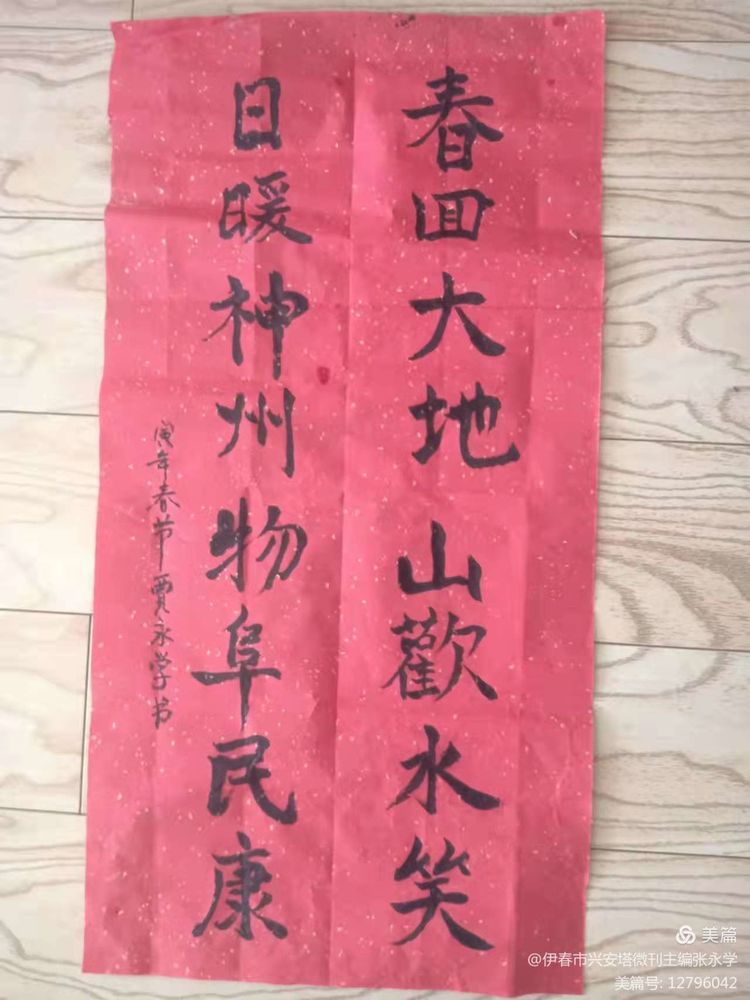 春回大地山歡水笑
日暖神州物阜民康
寅年春节賈永学书
美篇
@伊春市兴安塔微刊主编张永学
美篇号: 12796042